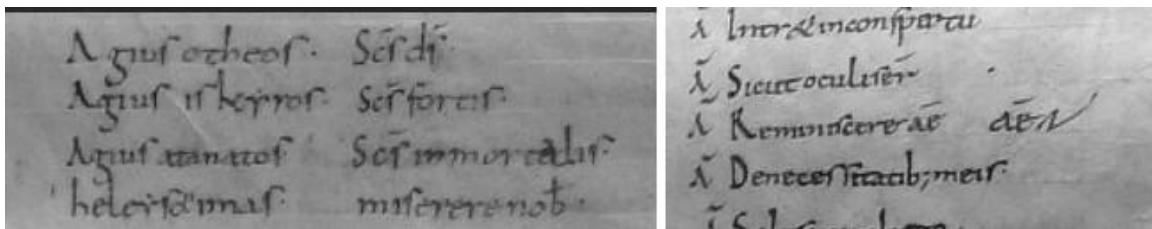 Agius otheos· Scs di·
Agius is kyrros· Scs fortis·
Agius atanatos· Scs inmortalis·
heleyson imas· miserere nob·
A Intret inconspectu
A Sicut oculi ser
A Reminiscere ae aeN
A Denecessitatib; meis·